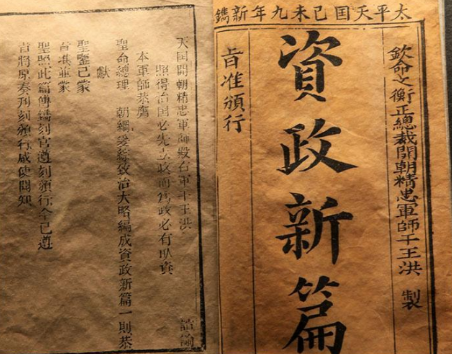 太平天囯己未九年新鐫
欽命文衡正總裁開朝精忠軍師干王洪 製
資政新篇
旨准頒行
天囯開朝精忠軍師殿右軍干王洪 諠諭
照得治囯必先立政而為政必有取資
本軍師恭膺
聖命總理 朝綱爰綜致治大略編成資政新篇一則恭
獻
聖鑒已蒙
旨准並蒙
聖照此篇傳鐫刻官遵刻頒行今已遵
旨將原奏刊刻頒行咸使聞知